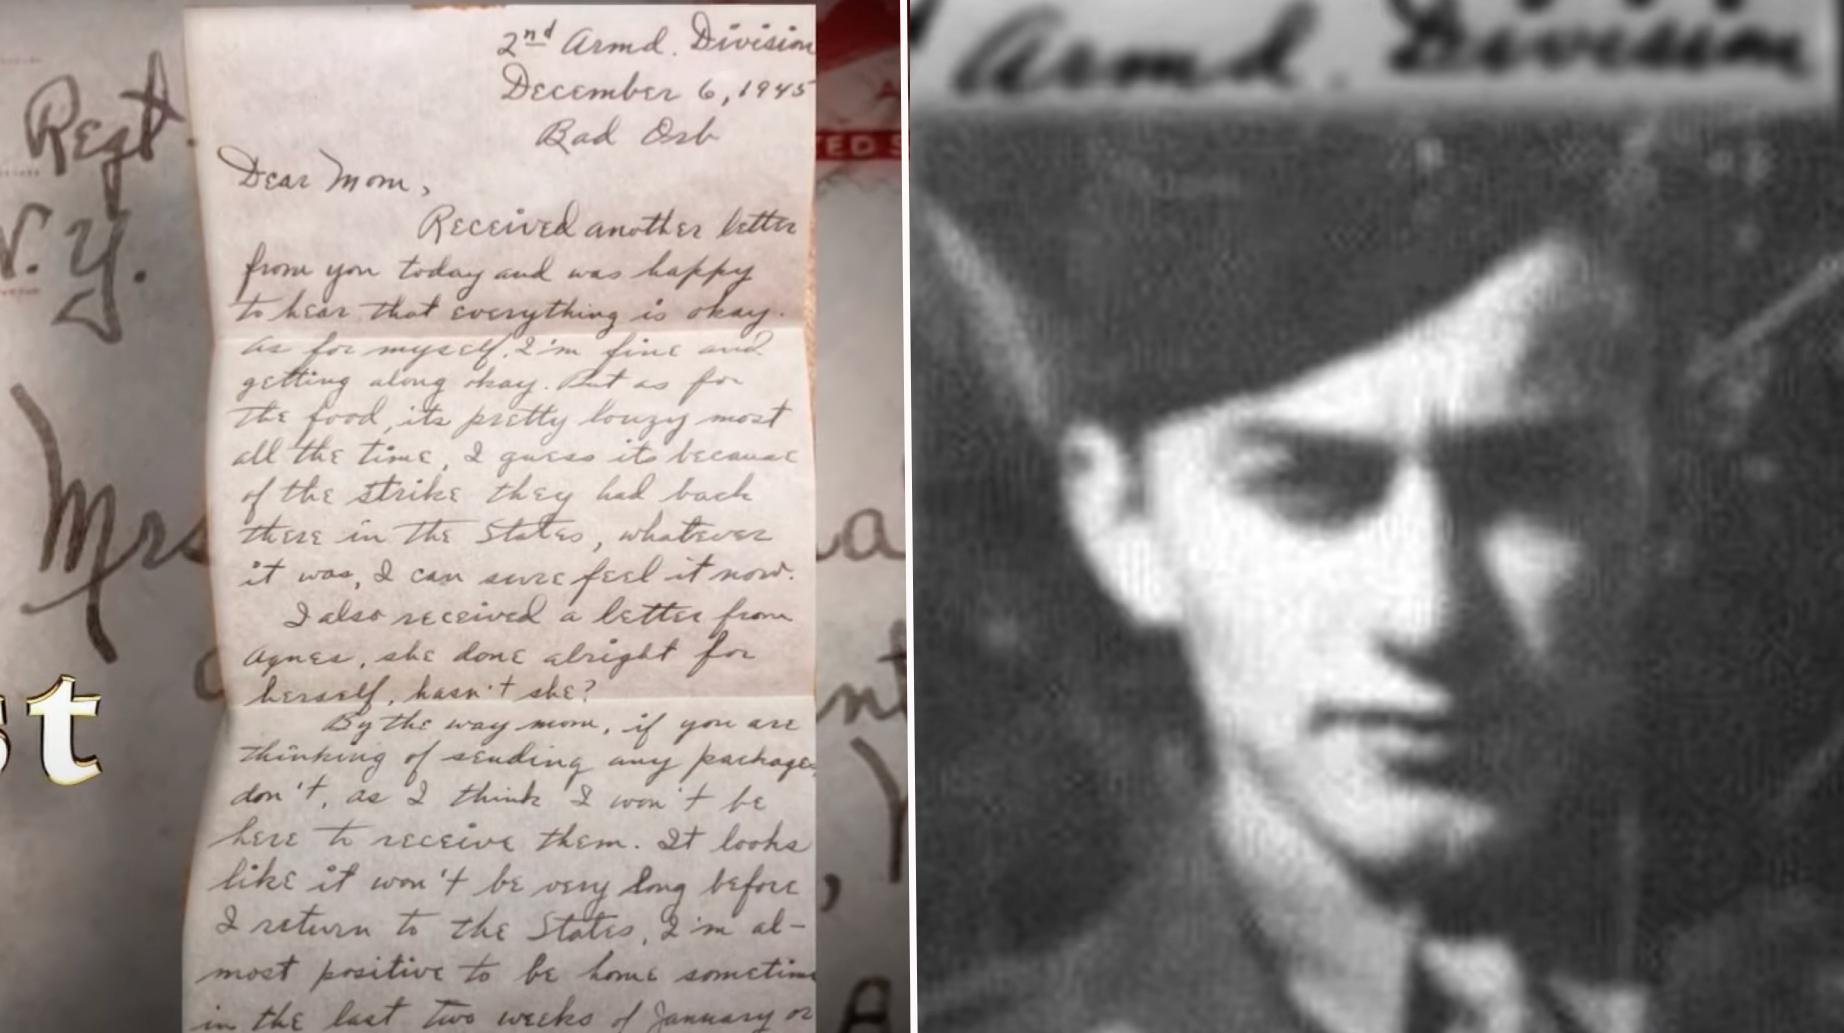 Regt.
N.Y.
Mrs
st
2nd Armd. Division
December 6, 1945
Bad Orb
Dear Mom,
Received another letter
from you today and was happy
to hear that everything is okay.
As for myself, I'm fine and
getting along okay. But as for
the food, its pretty louzy most
all the time, I guess its because
of the strike they had back
there in the States, whatever
it was, I can sure feel it now.
I also received a letter from
Agnes, she done alright for
herself, hasn't she?
By the way mom, if you are
thinking of sending any packages,
don't, as I think I won't be
here to receive them. It looks
like it won't be very long before
I return to the States, I'm al-
most positive to be home sometime
in the last two weeks of January or
TED S
Armd. Division